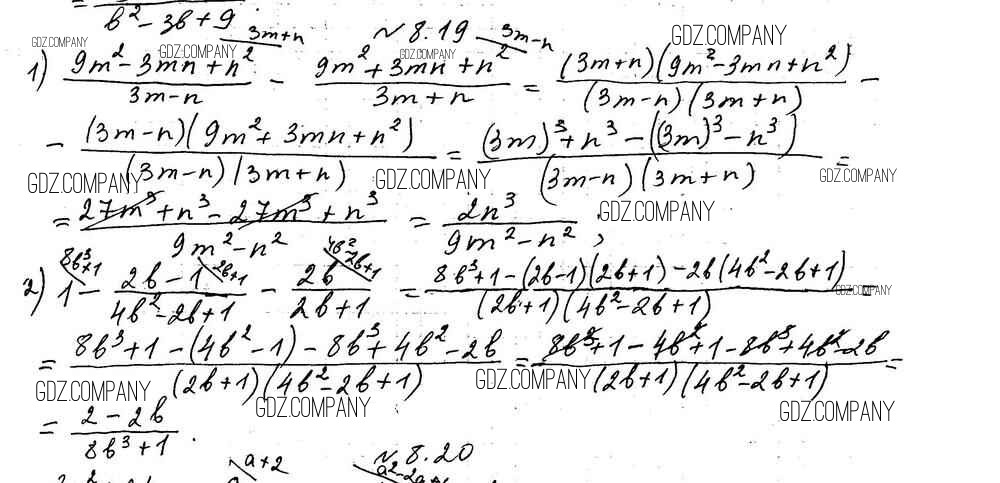 b² - 3b + 9
№ 8.19
1) (9m² - 3mn + n²)/(3m - n) (3m+n) - (9m² + 3mn + n²)/(3m + n) (3m-n) = ((3m+n)(9m² - 3mn + n²))/((3m - n)(3m + n)) -
- ((3m - n)(9m² + 3mn + n²))/((3m - n)(3m + n)) = ((3m)³ + n³ - ((3m)³ - n³))/((3m - n)(3m + n)) =
= (27m³ + n³ - 27m³ + n³)/(9m² - n²) = 2n³/(9m² - n²);
2) 1 (8b³+1) - (2b - 1)/(4b² - 2b + 1) (2b+1) - 2b/(2b + 1) (4b²-2b+1) = (8b³ + 1 - (2b-1)(2b+1) - 2b(4b² - 2b + 1))/((2b + 1)(4b² - 2b + 1)) =
= (8b³ + 1 - (4b² - 1) - 8b³ + 4b² - 2b)/((2b+1)(4b² - 2b + 1)) = (8b³ + 1 - 4b² + 1 - 8b³ + 4b² - 2b)/((2b+1)(4b² - 2b + 1)) =
= (2 - 2b)/(8b³ + 1).
№ 8.20
a+2
GDZ.COMPANY
GDZ.COMPANY
GDZ.COMPANY
GDZ.COMPANY
GDZ.COMPANY
GDZ.COMPANY
GDZ.COMPANY
GDZ.COMPANY
GDZ.COMPANY
GDZ.COMPANY
GDZ.COMPANY
GDZ.COMPANY
GDZ.COMPANY